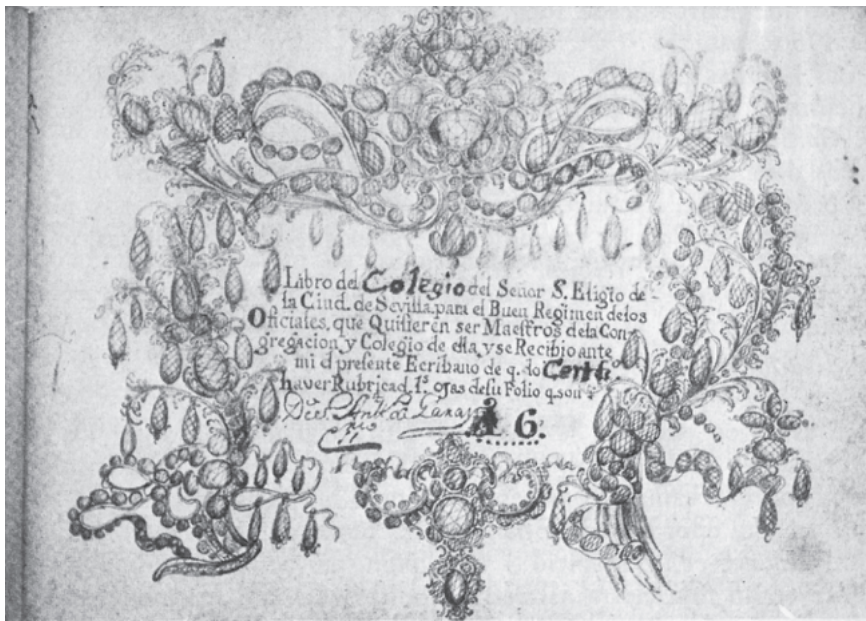 Libro del Colegio del Señor S. Eligio de
la Ciud. de Sevilla, para el Buen Regimen de los
Oficiales, que Quisieren ser Maestros de la Con-
gregacion, y Colegio de ella, y se Recibio ante
mi el presente Escribano de q. do Certifo
haver Rubricad. ls. ojas de su Folio q. son
6.